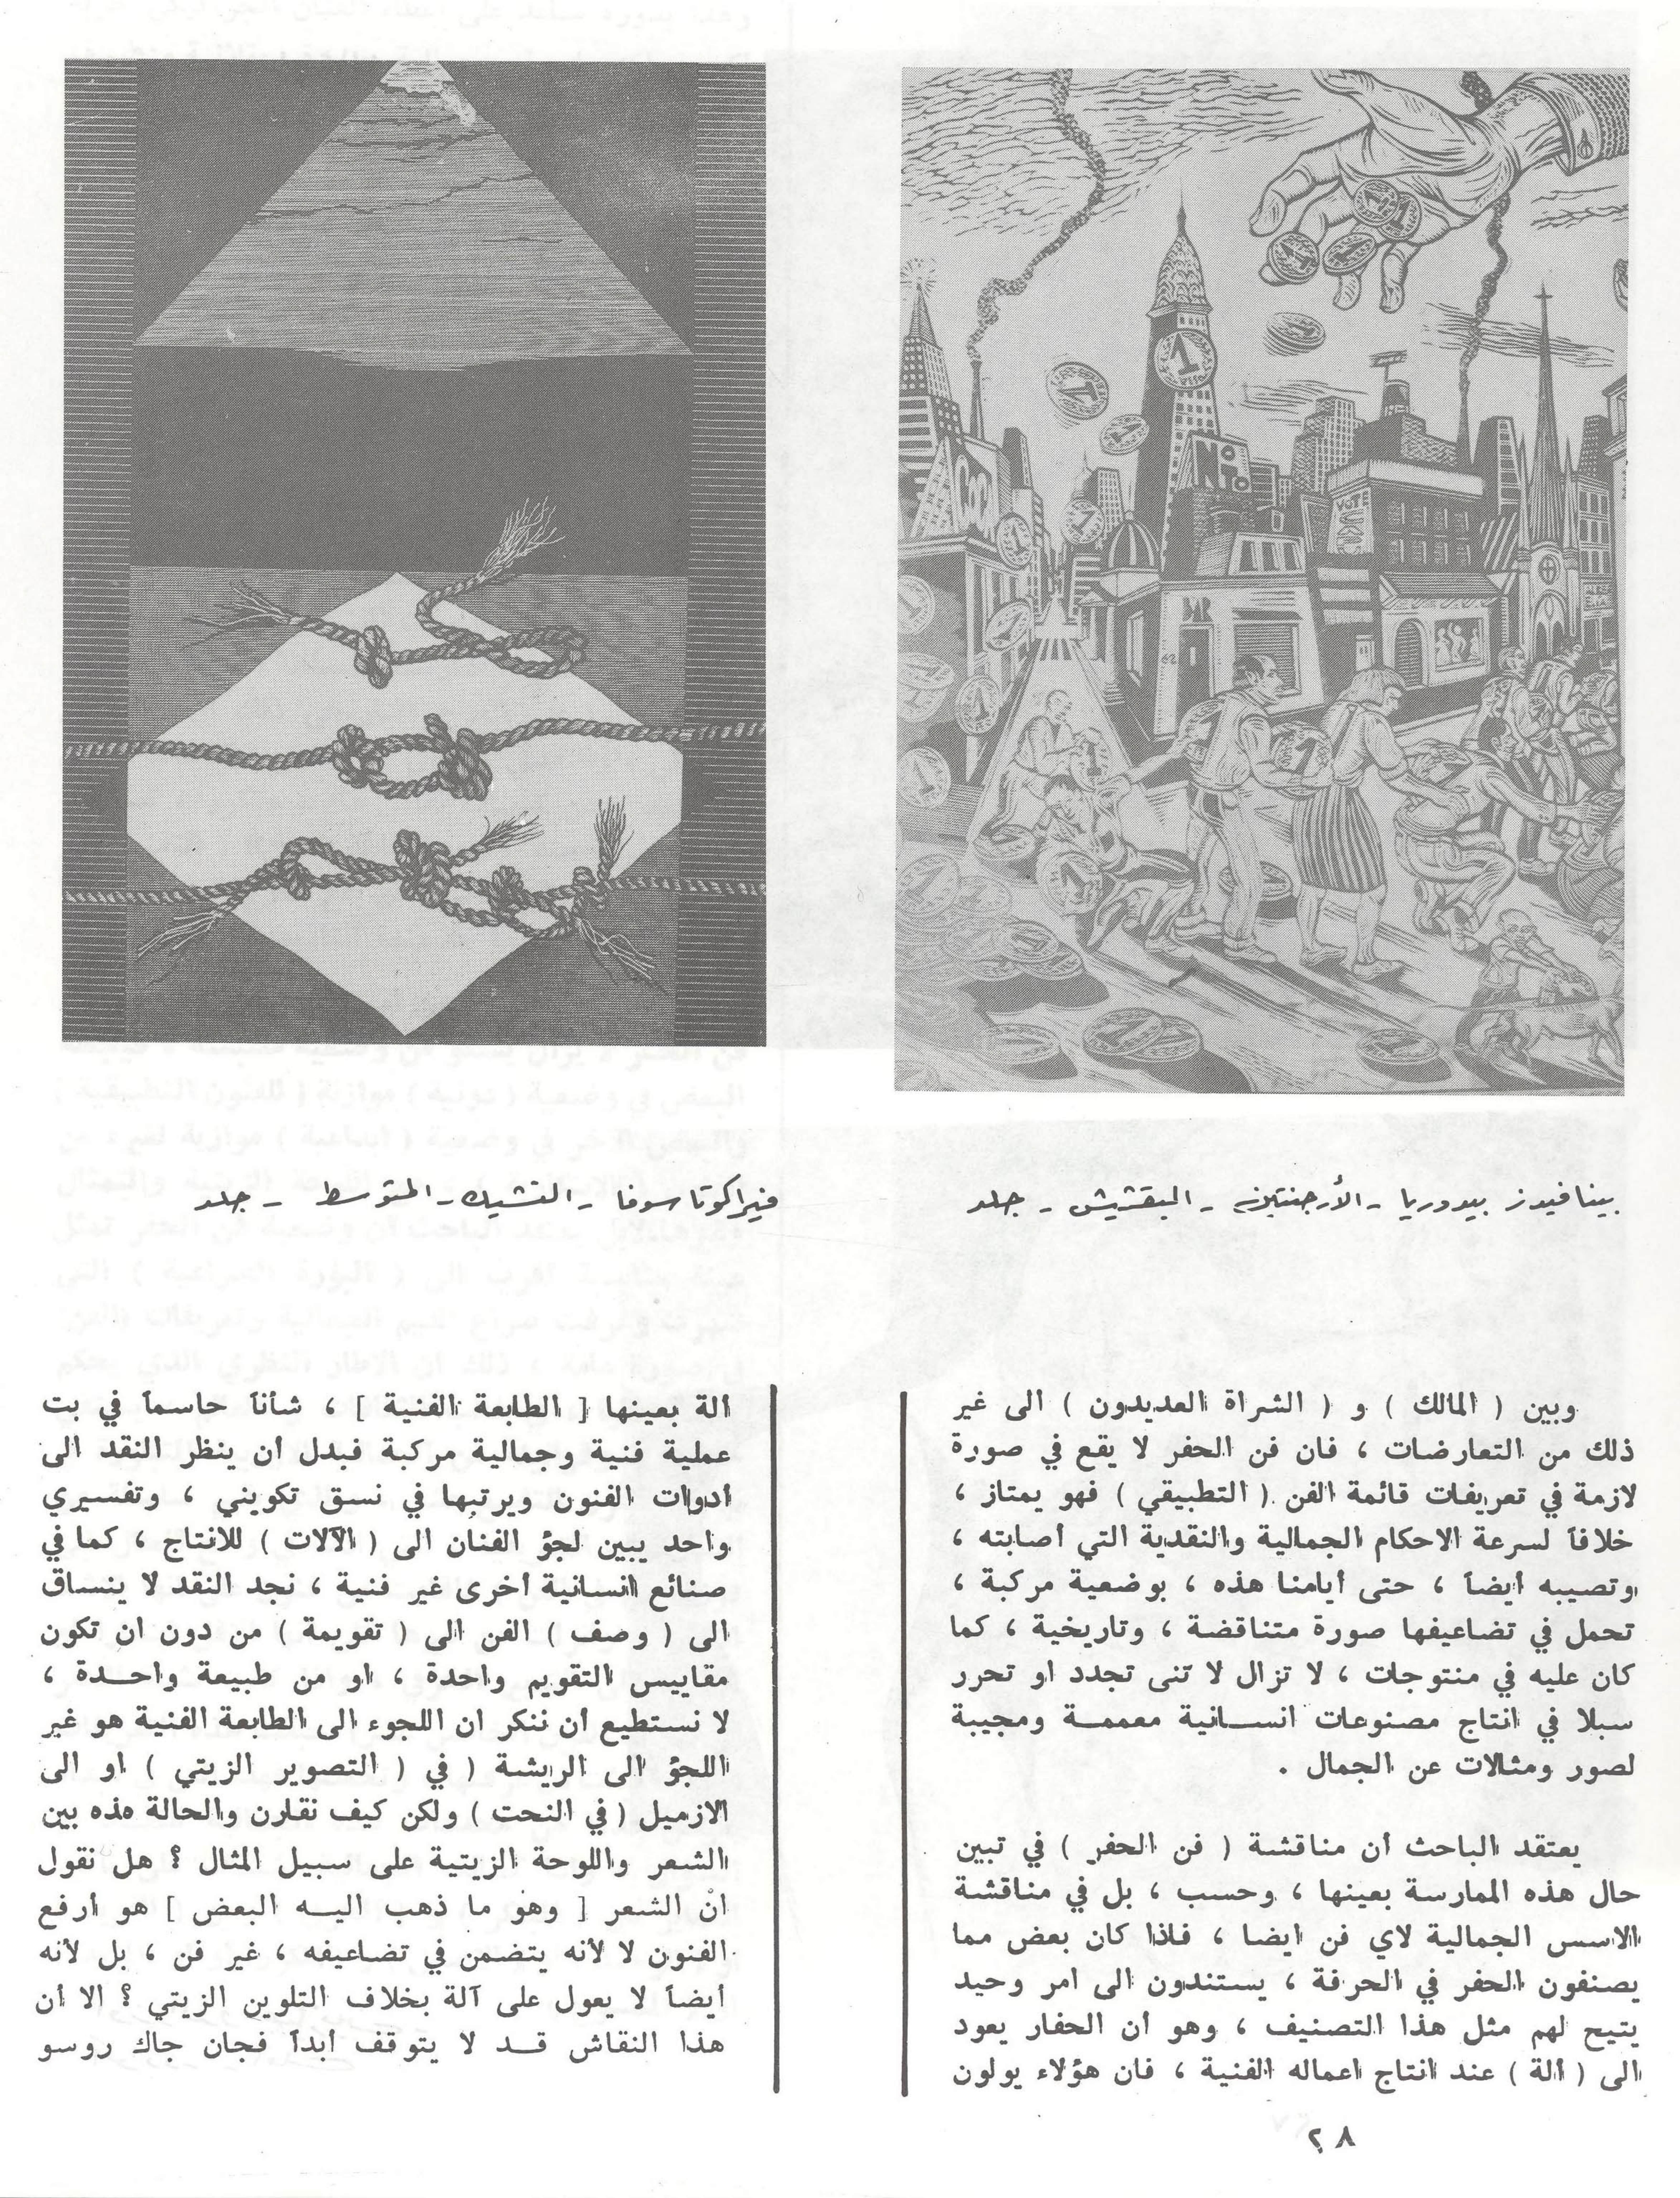 بينافيدز بيدوريا - الأرجنتين - البقشيش - جلد
فيراكوتاسوفا - التشيك - المتوسط - جلد
وبين ( المالك ) و ( الشراة العديدون ) الى غير
ذلك من التعارضات ، فان فن الحفر لا يقع في صورة
لازمة في تعريفات قائمة الفن ( التطبيقي ) فهو يمتاز ،
خلافاً لسرعة الاحكام الجمالية والنقدية التي أصابته ،
وتصيبه أيضاً ، حتى أيامنا هذه ، بوضعية مركبة ،
تحمل في تضاعيفها صورة متناقضة ، وتاريخية ، كما
كان عليه في منتوجات ، لا تزال لا تنى تجدد او تحرر
سبلا في انتاج مصنوعات انسانية معممة ومجيبة
لصور ومثالات عن الجمال .
يعتقد الباحث أن مناقشة ( فن الحفر ) في تبين
حال هذه الممارسة بعينها ، وحسب ، بل في مناقشة
الاسس الجمالية لاي فن ايضا ، فاذا كان بعض مما
يصنفون الحفر في الحرفة ، يستندون الى امر وحيد
يتيح لهم مثل هذا التصنيف ، وهو أن الحفار يعود
الى ( ألة ) عند انتاج اعماله الفنية ، فان هؤلاء يولون
ألة بعينها [ الطابعة الفنية ] ، شأناً حاسماً في بت
عملية فنية وجمالية مركبة فبدل أن ينظر النقد الى
ادوات الفنون ويرتبها في نسق تكويني ، وتفسيري
واحد يبين لجؤ الفنان الى ( الآلات ) للانتاج ، كما في
صنائع انسانية أخرى غير فنية ، نجد النقد لا ينساق
الى ( وصف ) الفن الى ( تقويمة ) من دون ان تكون
مقاييس التقويم واحدة ، او من طبيعة واحدة ،
لا نستطيع أن ننكر ان اللجوء الى الطابعة الفنية هو غير
اللجؤ الى الريشة ( في ( التصوير الزيتي ) او الى
الازميل ( في النحت ) ولكن كيف نقارن والحالة هذه بين
الشعر واللوحة الزيتية على سبيل المثال ؟ هل نقول
ان الشعر [ وهو ما ذهب اليه البعض ] هو أرفع
الفنون لا لأنه يتضمن في تضاعيفه ، غير فن ، بل لأنه
أيضاً لا يعول على آلة بخلاف التلوين الزيتي ؟ الا أن
هذا النقاش قد لا يتوقف أبداً فجان جاك روسو
٢٨